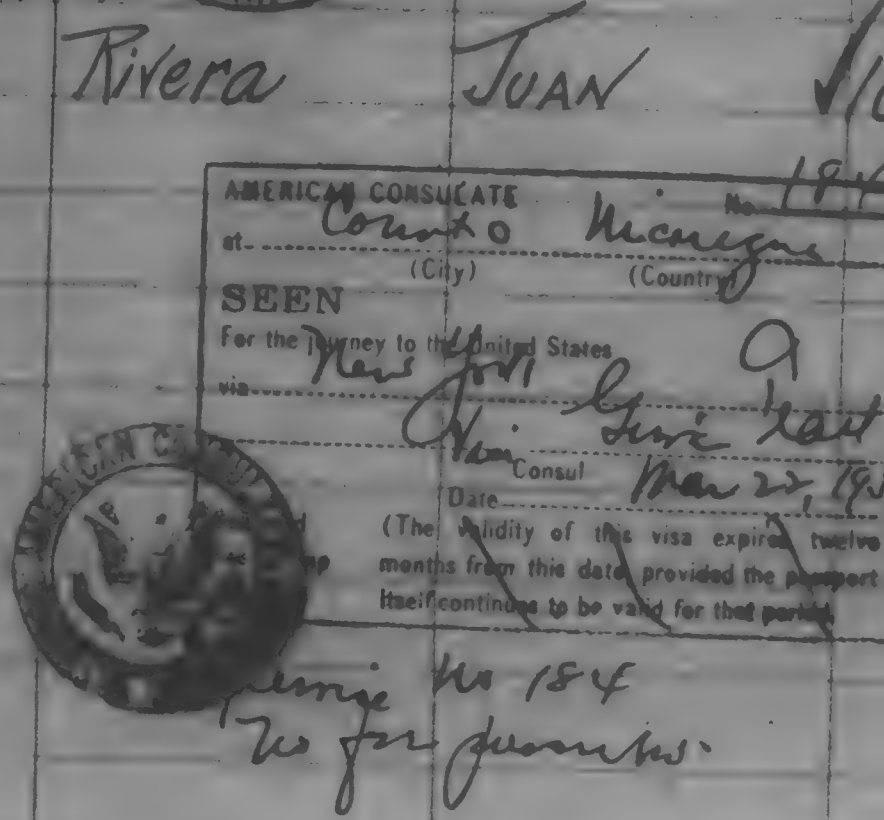 Rivera JUAN
AMERICAN CONSULATE No. 184
at Corinto Nicaragua
(City) (Country)
SEEN
For the journey to the United States
via New York
Consul Mar 22, 193
Date
(The validity of this visa expires twelve
months from this date provided the passport
itself continues to be valid for that period.
AMERICAN CONSUL
Service No 184
No fee prescribed.